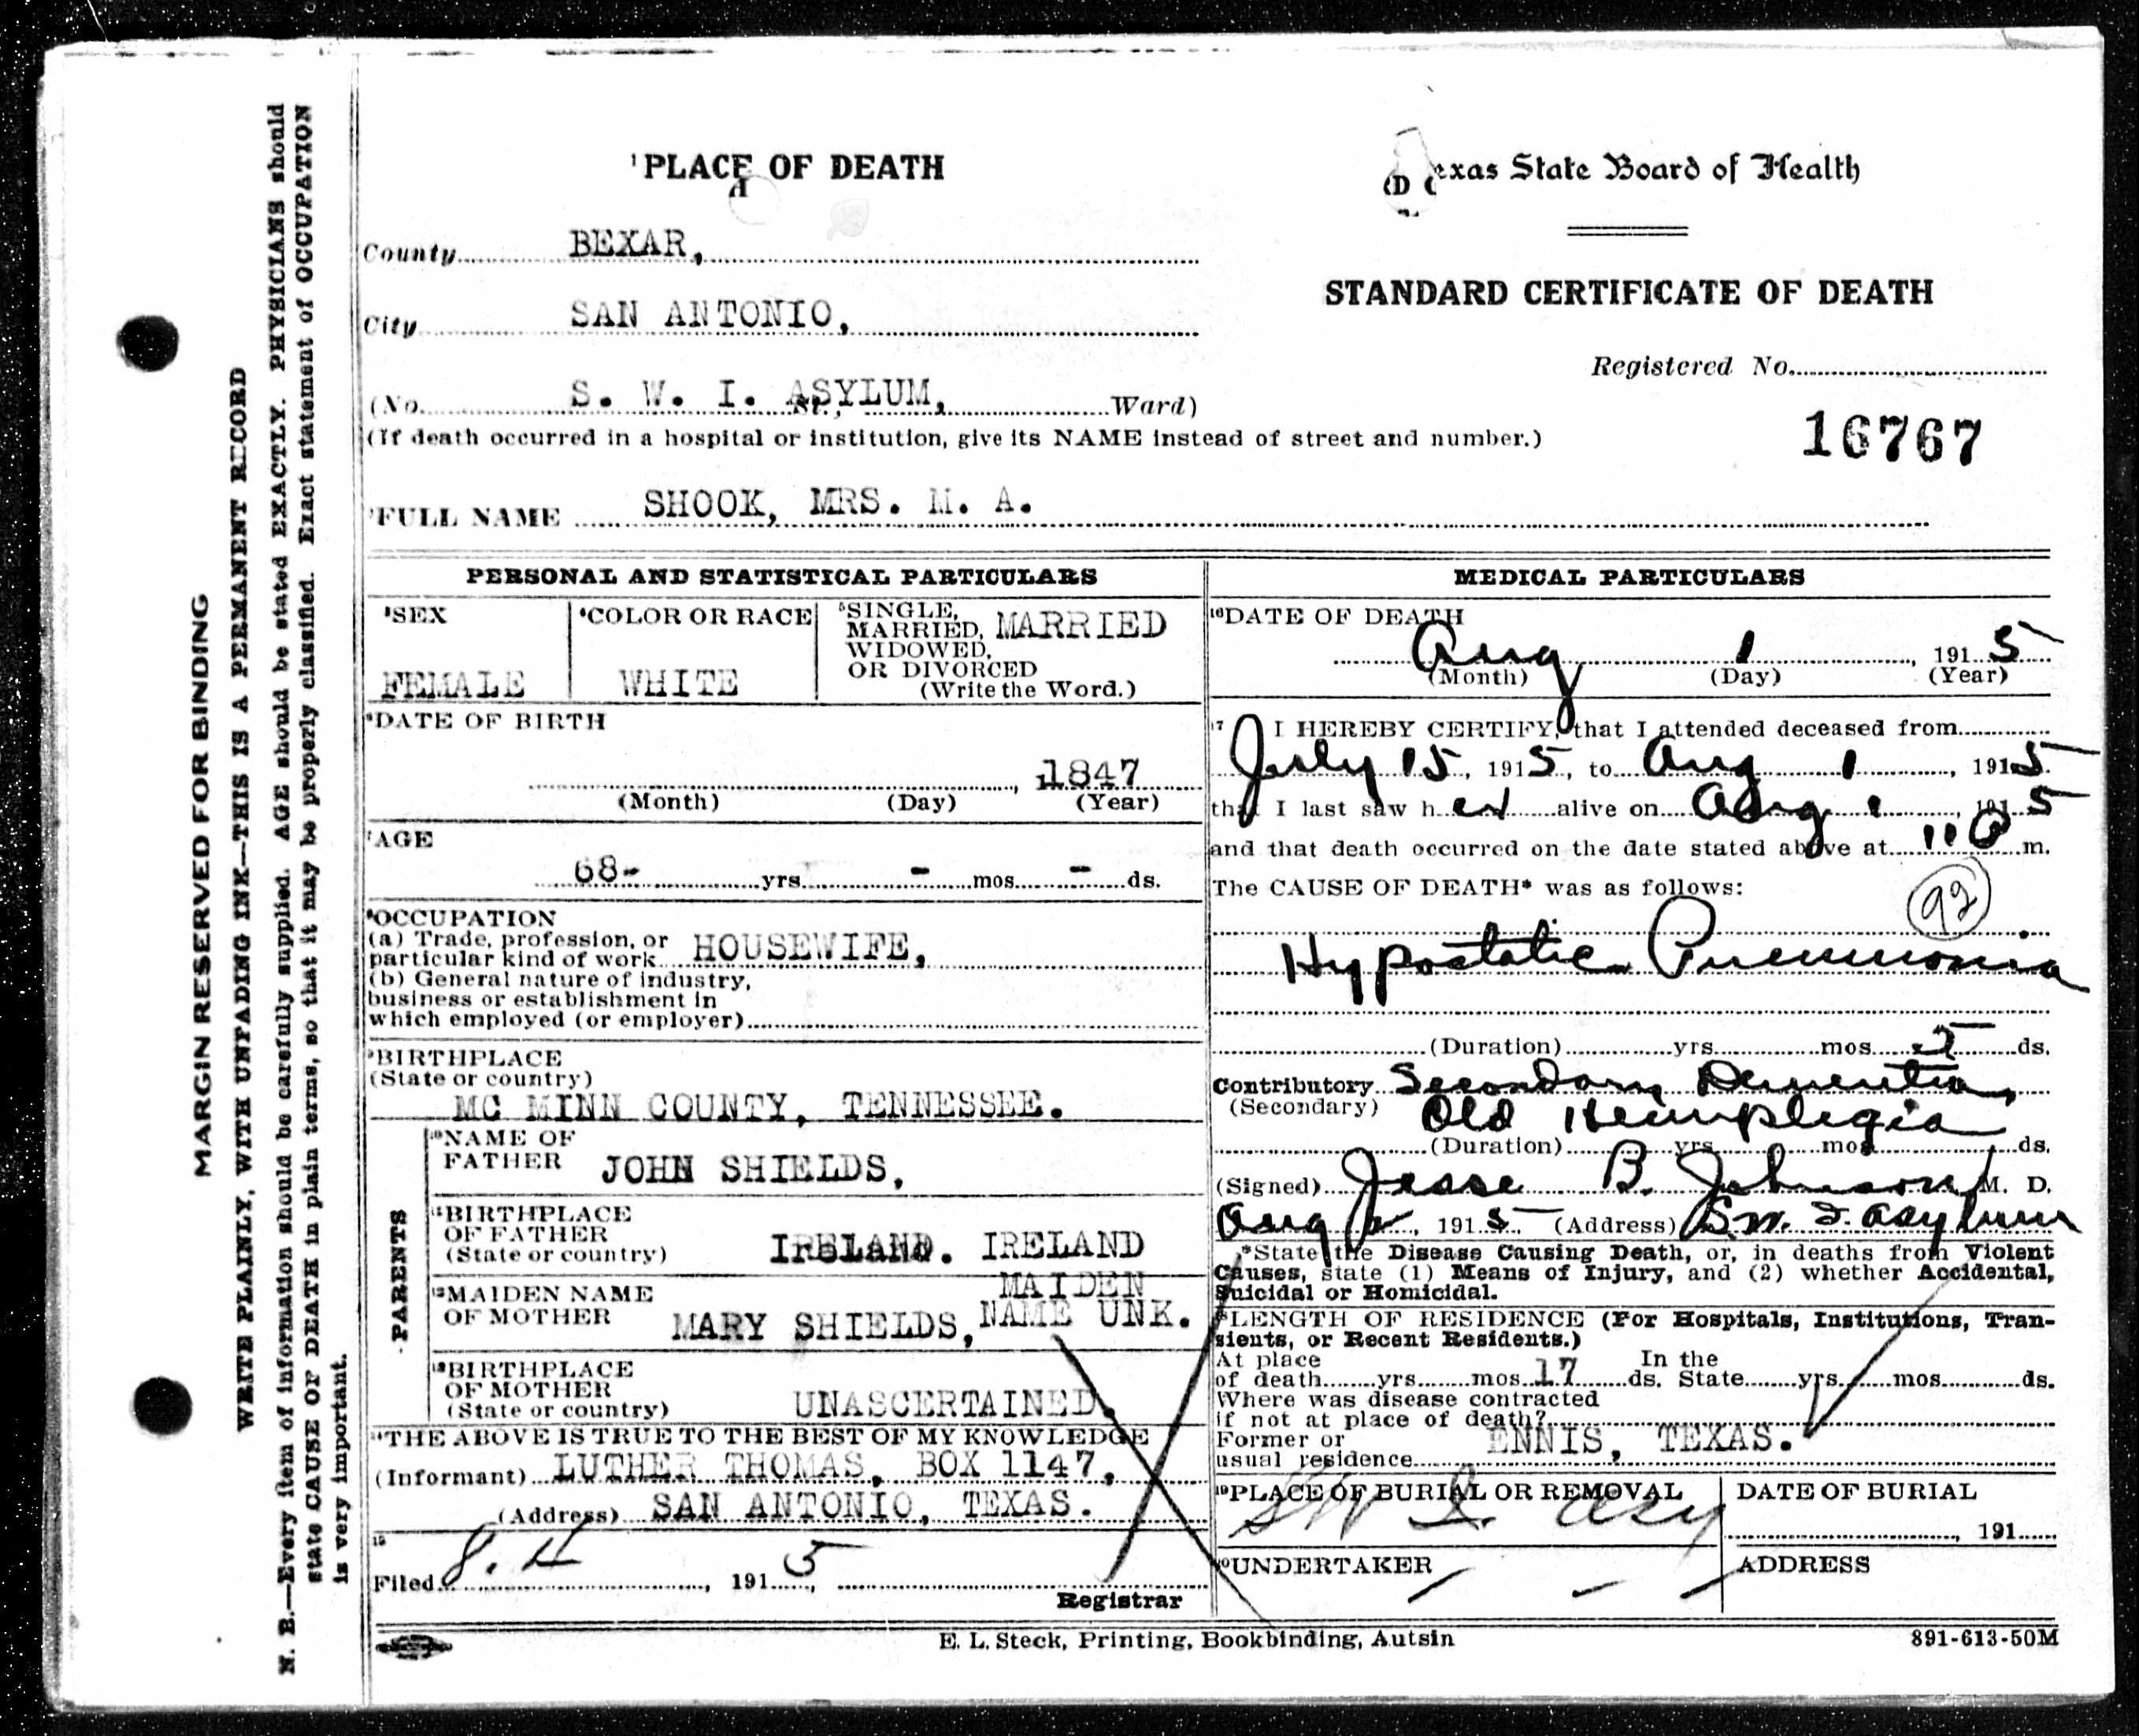 MARGIN RESERVED FOR BINDING
WRITE PLAINLY, WITH UNFADING INK—THIS IS A PERMANENT RECORD
N. B.—Every item of information should be carefully supplied. AGE should be stated EXACTLY. PHYSICIANS should
state CAUSE OF DEATH in plain terms, so that it may be properly classified. Exact statement of OCCUPATION
is very important.
1 PLACE OF DEATH
County BEXAR,
City SAN ANTONIO,
(No. S. W. I. ASYLUM, St., Ward)
(If death occurred in a hospital or institution, give its NAME instead of street and number.)
exas State Board of Health
STANDARD CERTIFICATE OF DEATH
Registered No.
16767
2 FULL NAME SHOOK, MRS. M. A.
PERSONAL AND STATISTICAL PARTICULARS
3 SEX
FEMALE
4 COLOR OR RACE
WHITE
5 SINGLE,
MARRIED, MARRIED
WIDOWED,
OR DIVORCED
(Write the Word.)
6 DATE OF BIRTH
, 1847
(Month) (Day) (Year)
7 AGE
68- yrs. - mos. - ds.
8 OCCUPATION
(a) Trade, profession, or
particular kind of work HOUSEWIFE,
(b) General nature of industry,
business or establishment in
which employed (or employer)
9 BIRTHPLACE
(State or country)
MC MINN COUNTY, TENNESSEE.
PARENTS
10 NAME OF
FATHER JOHN SHIELDS,
11 BIRTHPLACE
OF FATHER
(State or country) IRELAND. IRELAND
12 MAIDEN NAME MAIDEN
OF MOTHER MARY SHIELDS, NAME UNK.
13 BIRTHPLACE
OF MOTHER
(State or country) UNASCERTAINED.
14 THE ABOVE IS TRUE TO THE BEST OF MY KNOWLEDGE
(Informant) LUTHER THOMAS, BOX 1147,
(Address) SAN ANTONIO, TEXAS.
15
Filed 8. 4, 1915,
Registrar
MEDICAL PARTICULARS
16 DATE OF DEATH
Aug 1, 1915
(Month) (Day) (Year)
17 I HEREBY CERTIFY, that I attended deceased from
July 15, 1915, to Aug 1, 1915
that I last saw her alive on Aug 1, 1915
and that death occurred on the date stated above at 11 a m.
The CAUSE OF DEATH* was as follows:
92
Hypostatic Pneumonia
(Duration) yrs. mos. 5 ds.
Contributory Secondary Dementia,
(Secondary) Old Hemiplegia
(Duration) yrs. mos. ds.
(Signed) Jesse B. Johnson M. D.
Aug 2, 1915 (Address) S. W. I. Asylum
*State the Disease Causing Death, or, in deaths from Violent
Causes, state (1) Means of Injury, and (2) whether Accidental,
Suicidal or Homicidal.
18 LENGTH OF RESIDENCE (For Hospitals, Institutions, Tran-
sients, or Recent Residents.)
At place In the
of death yrs. mos. 17 ds. State yrs. mos. ds.
Where was disease contracted
if not at place of death?
Former or ENNIS, TEXAS.
usual residence
19 PLACE OF BURIAL OR REMOVAL
S W I. Asy
DATE OF BURIAL
, 191
20 UNDERTAKER
ADDRESS
E. L. Steck, Printing, Bookbinding, Autsin
891-613-50M